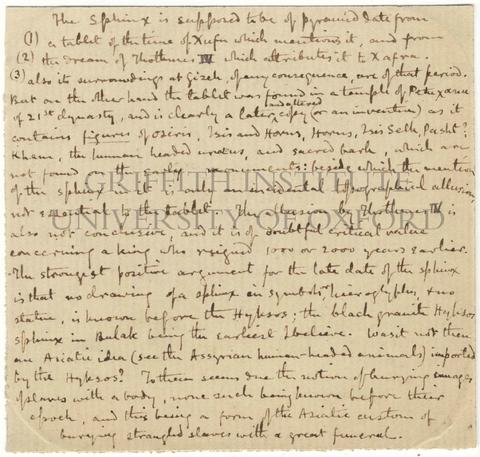 The Sphinx is supposed to be of pyramid date from
(1) a tablet of the time of Xufu which mentions it, and from
(2) the dream of Thothmes IV which attributes it to Xafra.
(3) also its surroundings at Gizeh, of any consequence, are of that period.
But on the other hand the tablet was found in a temple of Petuxanu
of 21st dynasty, and is clearly a later and altered copy (or an invention) as it
contains figures of Osiris, Isis and Horus, Horus, Isis Selk, Pasht?
Khem, the human headed uraeus, and sacred bark, which are
not found on the early monuments: beside which the mention
of the sphinx in it is only an incidental topographical allusion,
not essential to the tablet. The allusion by Thothmes IV is
also not conclusive, and it is of doubtful critical value
concerning a king who reigned 1000 or 2000 years earlier.
The strongest positive argument for the late date of the sphinx
is that no drawing of a sphinx in symbols or hieroglyphs, & no
statue, is known before the Hyksos; the black granite Hyksos
sphinx in Bulak being the earliest I believe. Was it not then
an Asiatic idea (see the Assyrian human-headed animals) imported
by the Hyksos? To them seems due the notion of burying images
of slaves with a body, none such being known before their
epoch, and this being a form of the Asiatic custom of
burying strangled slaves with a great funeral.
GRIFFITH INSTITUTE
UNIVERSITY OF OXFORD